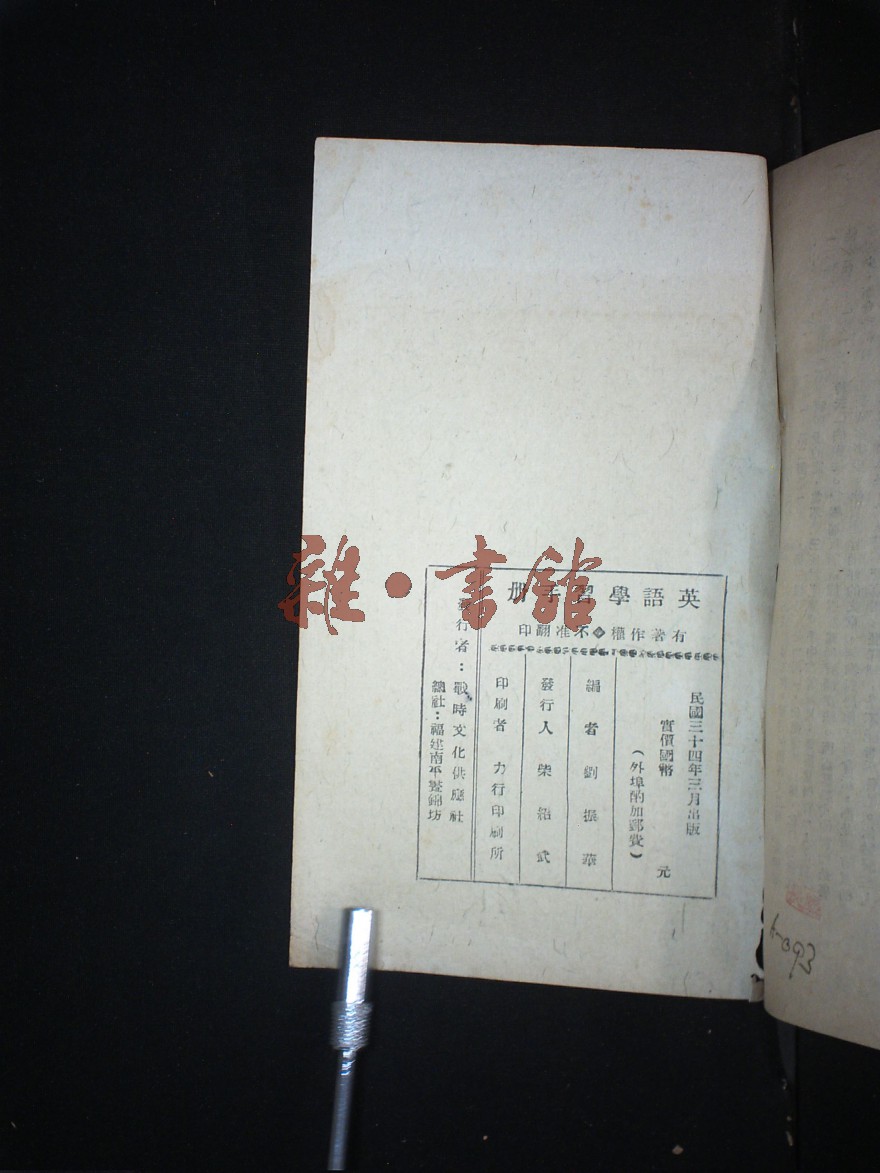 英語學習手册
有著作權 不准翻印
民國三十四年三月出版
實價國幣 元
（外埠酌加郵費）
編者 劉振華
發行人 柴紹武
印刷者 力行印刷所
發行者：戰時文化供應社
總社：福建南平鹽錦坊
雜·書館
A-093